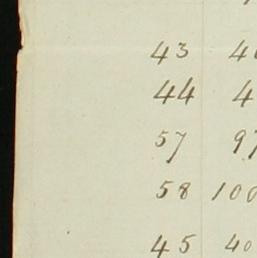 43 4
44 4
57 97
58 100
45 40